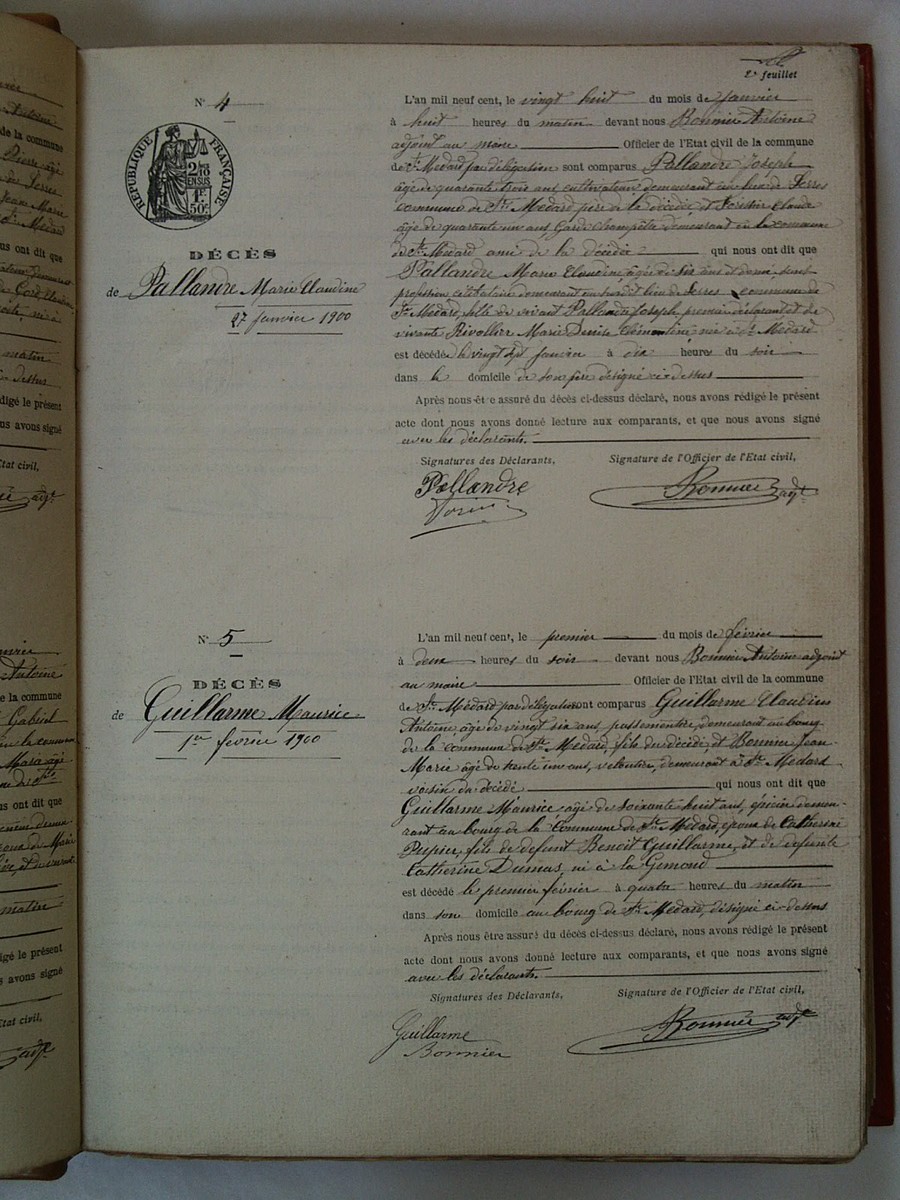 2e feuillet
N° 4
RÉPUBLIQUE FRANÇAISE
2/10
EN SUS
1F
50c
DÉCÈS
de Pallandre Marie Claudine
27 janvier 1900
L'an mil neuf cent, le vingt huit du mois de Janvier
à huit heures du matin devant nous Bonnier Antoine
adjoint au maire Officier de l'Etat civil de la commune
de St Medard par délégation sont comparus Pallandre Joseph
âgé de quarante trois ans cultivateur demeurant au lieu de Serres
commune de St Medard père de la décédée, et Forissier Claude
âgé de quarante un ans Garde Champêtre demeurant en la commune
de St Medard ami de la décédée qui nous ont dit que
Pallandre Marie Claudine âgée de six ans et demi sans
profession célibataire demeurant au lieu de Serres commune de
St Medard, fille de vivant Pallandre Joseph premier déclarant et de
vivante Rivollier Marie Denise Clémentine, née à St Medard
est décédée le vingt sept Janvier à dix heures du soir
dans le domicile de son père désigné ci-dessus
Après nous être assuré du décès ci-dessus déclaré, nous avons rédigé le présent
acte dont nous avons donné lecture aux comparants, et que nous avons signé
avec les déclarants.
Signatures des Déclarants, Signature de l'Officier de l'Etat civil,
Pallandre Bonnier adjt
N° 5
DÉCÈS
de Guillarme Maurice
1er février 1900
L'an mil neuf cent, le premier du mois de février
à deux heures du soir devant nous Bonnier Antoine adjoint
au maire Officier de l'Etat civil de la commune
de St Medard par délégation sont comparus Guillarme Claudius
Antoine âgé de vingt six ans, passementier, demeurant au bourg
de la commune de St Medard, fils du décédé, et Bonnier Jean
Marie âgé de trente un ans, veloutier, demeurant à St Medard
voisin du décédé qui nous ont dit que
Guillarme Maurice âgé de soixante huit ans, épicier demeu-
rant au bourg de la Commune de St Medard, époux de Catherine
Pupier, fils de défunt Benoît Guillarme, et de défunte
Catherine Dumas, né à la Gimond
est décédé le premier février à quatre heures du matin
dans son domicile au bourg de St Medard, désigné ci-dessus
Après nous être assuré du décès ci-dessus déclaré, nous avons rédigé le présent
acte dont nous avons donné lecture aux comparants, et que nous avons signé
avec les déclarants.
Signatures des Déclarants, Signature de l'Officier de l'Etat civil,
Guillarme Bonnier adjt
Bonnier